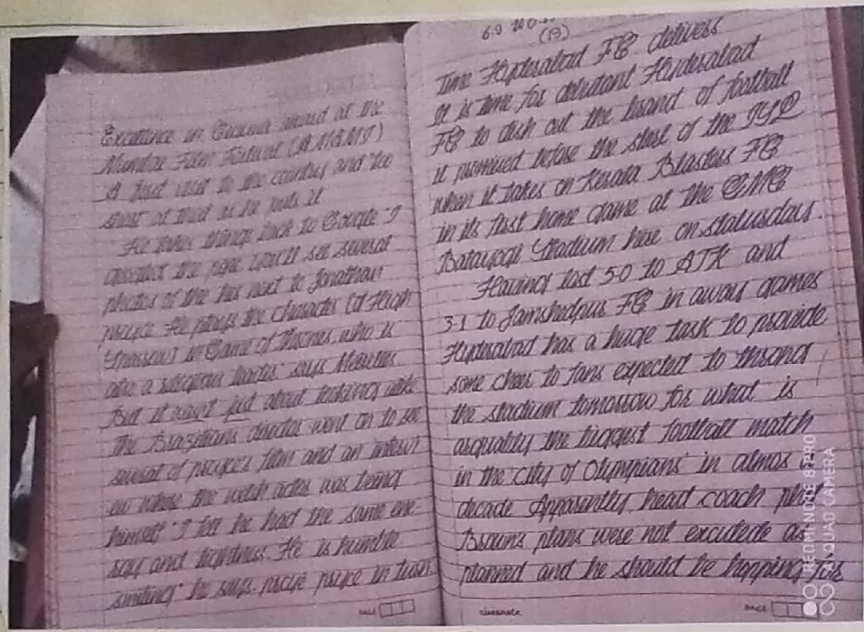 Excellence in Cinema award at the
Mumbai Film Festival (MAMI)
A first visit to the country and "too
short at that as he puts it
He takes things back to Google "I
the page you'll see several
photos of the his next to Jonathan
pryce. He plays the character (of High
Sparrow) in Game of Thrones, who is
also a religious leader" says Meirelles
But it wasn't just about looking alike
The Brazilians director went on to see
several of pryce's film and an intervi
ew where the welsh actor was being
himself "I felt he had the same ene
rgy and lightness. He is humble
smiling" he says. pryce in turn
6-9
(13)
Time Hyderabad FC delivers
It is time for debutant Hyderabad
FC to dish out the brand of football
it promised before the start of the ISL
when it takes on Kerala Blasters FC
in its first home game at the GMC
Balayogi Stadium here on saturday.
Having lost 5-0 to ATK and
3-1 to Jamshedpur FC in away games
Hyderabad has a huge task to provide
some cheer to fans expected to throng
the stadium tomorrow for what is
arguably the biggest football match
in the city of Olympians' in almos
decade Apparently, head coach phil
Brown's plans were not excutede as
planned and he should be hopping for
PAGE
classmate
PAGE
REDMI NOTE 8 PRO
AI QUAD CAMERA